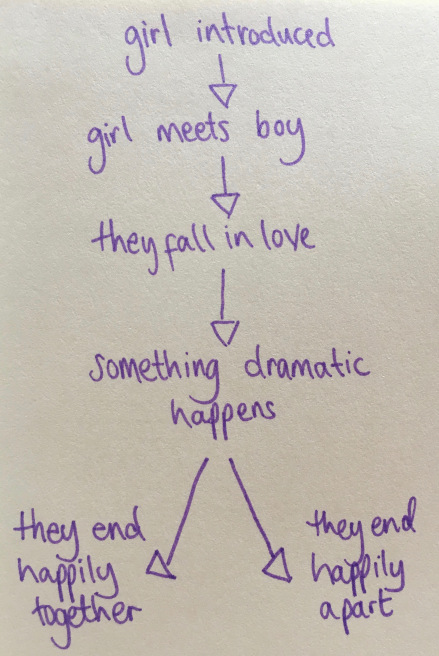 girl introduced
girl meets boy
they fall in love
something dramatic
happens
they end
happily
together
they end
happily
apart